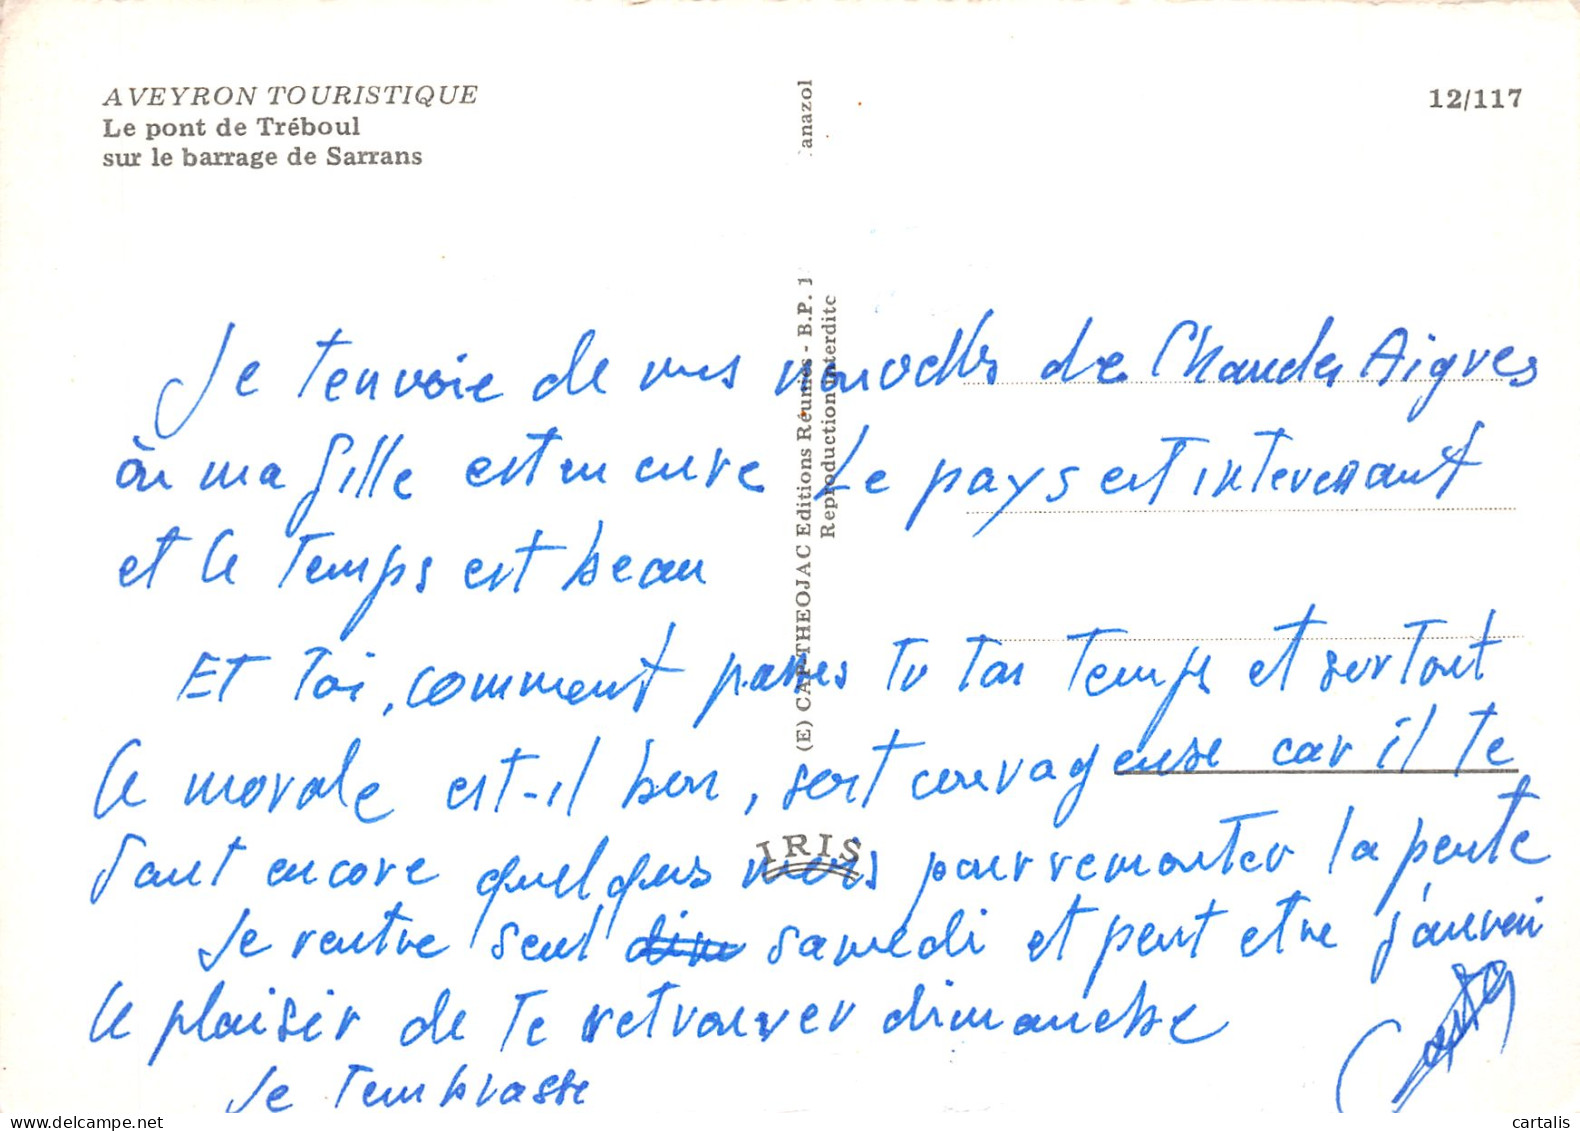 AVEYRON TOURISTIQUE
Le pont de Tréboul
sur le barrage de Sarrans
12/117
anazol
(E) CAP-THEOJAC Editions Réunies - B.P. 1
Reproduction interdite
IRIS
Je t'envoie de mes nouvelles de Chaudes Aigues
où ma fille est en cure Le pays est interessant
et le temps est beau
Et toi, comment passes tu ton temps et surtout
le morale est-il bon, soit courageuse car il te
faut encore quelques mois pour remonter la pente
Je rentre seul samedi et peut etre j'aurai
le plaisir de te retrouver dimanche
Je t'embrasse
cartalis